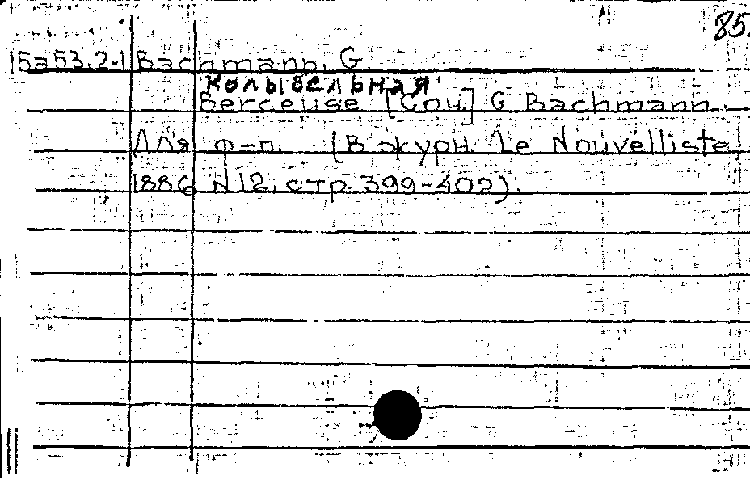 85.
5а53.2-1 Bachmann, G.
Колыбельная
Berceuse [Соч.] G. Bachmann.
Для ф-п. (В журн. Le Nouvelliste
1886 N12, стр. 399-402).